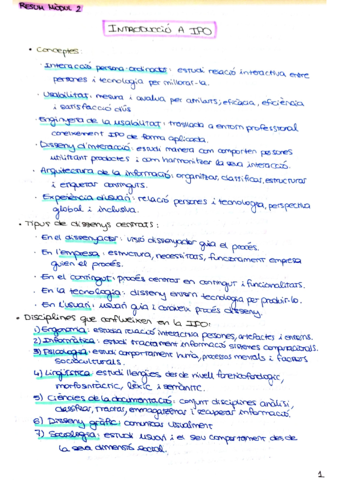 RESUM MÒDUL 2
INTRODUCCIÓ A IPO
• Conceptes:
· Interacció persona-ordinador: estudi relació interactiva entre
persones i tecnologia per millorar-la.
· Usabilitat: mesura i avalua per atributs; eficàcia, eficiència
i satisfacció d'ús
· Enginyeria de la usabilitat: trasllada a entorn professional
coneixement IPO de forma aplicada.
· Disseny d'interacció: estudi manera com comporten persones
utilitzant productes i com harmonitzar la seva interacció.
· Arquitectura de la informació: organitzar, classificar, estructurar
i etiquetar continguts.
· Experiència d'usuari: relació persones i tecnologia, perspectiva
global i inclusiva.
• Tipus de dissenys centrats:
· En el dissenyador: visió dissenyador guia el procés.
· En l'empresa: estructura, necessitats, funcionament empresa
guien el procés.
· En el contingut: procés centrar en contingut i funcionalitats.
· En la tecnologia: disseny entorn tecnologia per produir-lo.
· En l'usuari: usuari guia i condueix procés disseny.
• Disciplines que conflueixen en la IPO:
1) Ergonomia: estudia relació interactiva persones, artefactes i entorns.
2) Informàtica: estudi tractament informació sistemes computacionals.
3) Psicologia: estudi comportament humà, processos mentals i factors
socioculturals.
4) Lingüística: estudi llengües des de nivell foneticofonològic,
morfosintàctic, lèxic i semàntic.
5) Ciències de la documentació: conjunt disciplines anàlisi,
classificar, tractar, emmagatzemar i recuperar informació.
6) Disseny gràfic: comunicar visualment
7) Sociologia: estudi usuari i el seu comportament des de
la seva dimensió social.
1